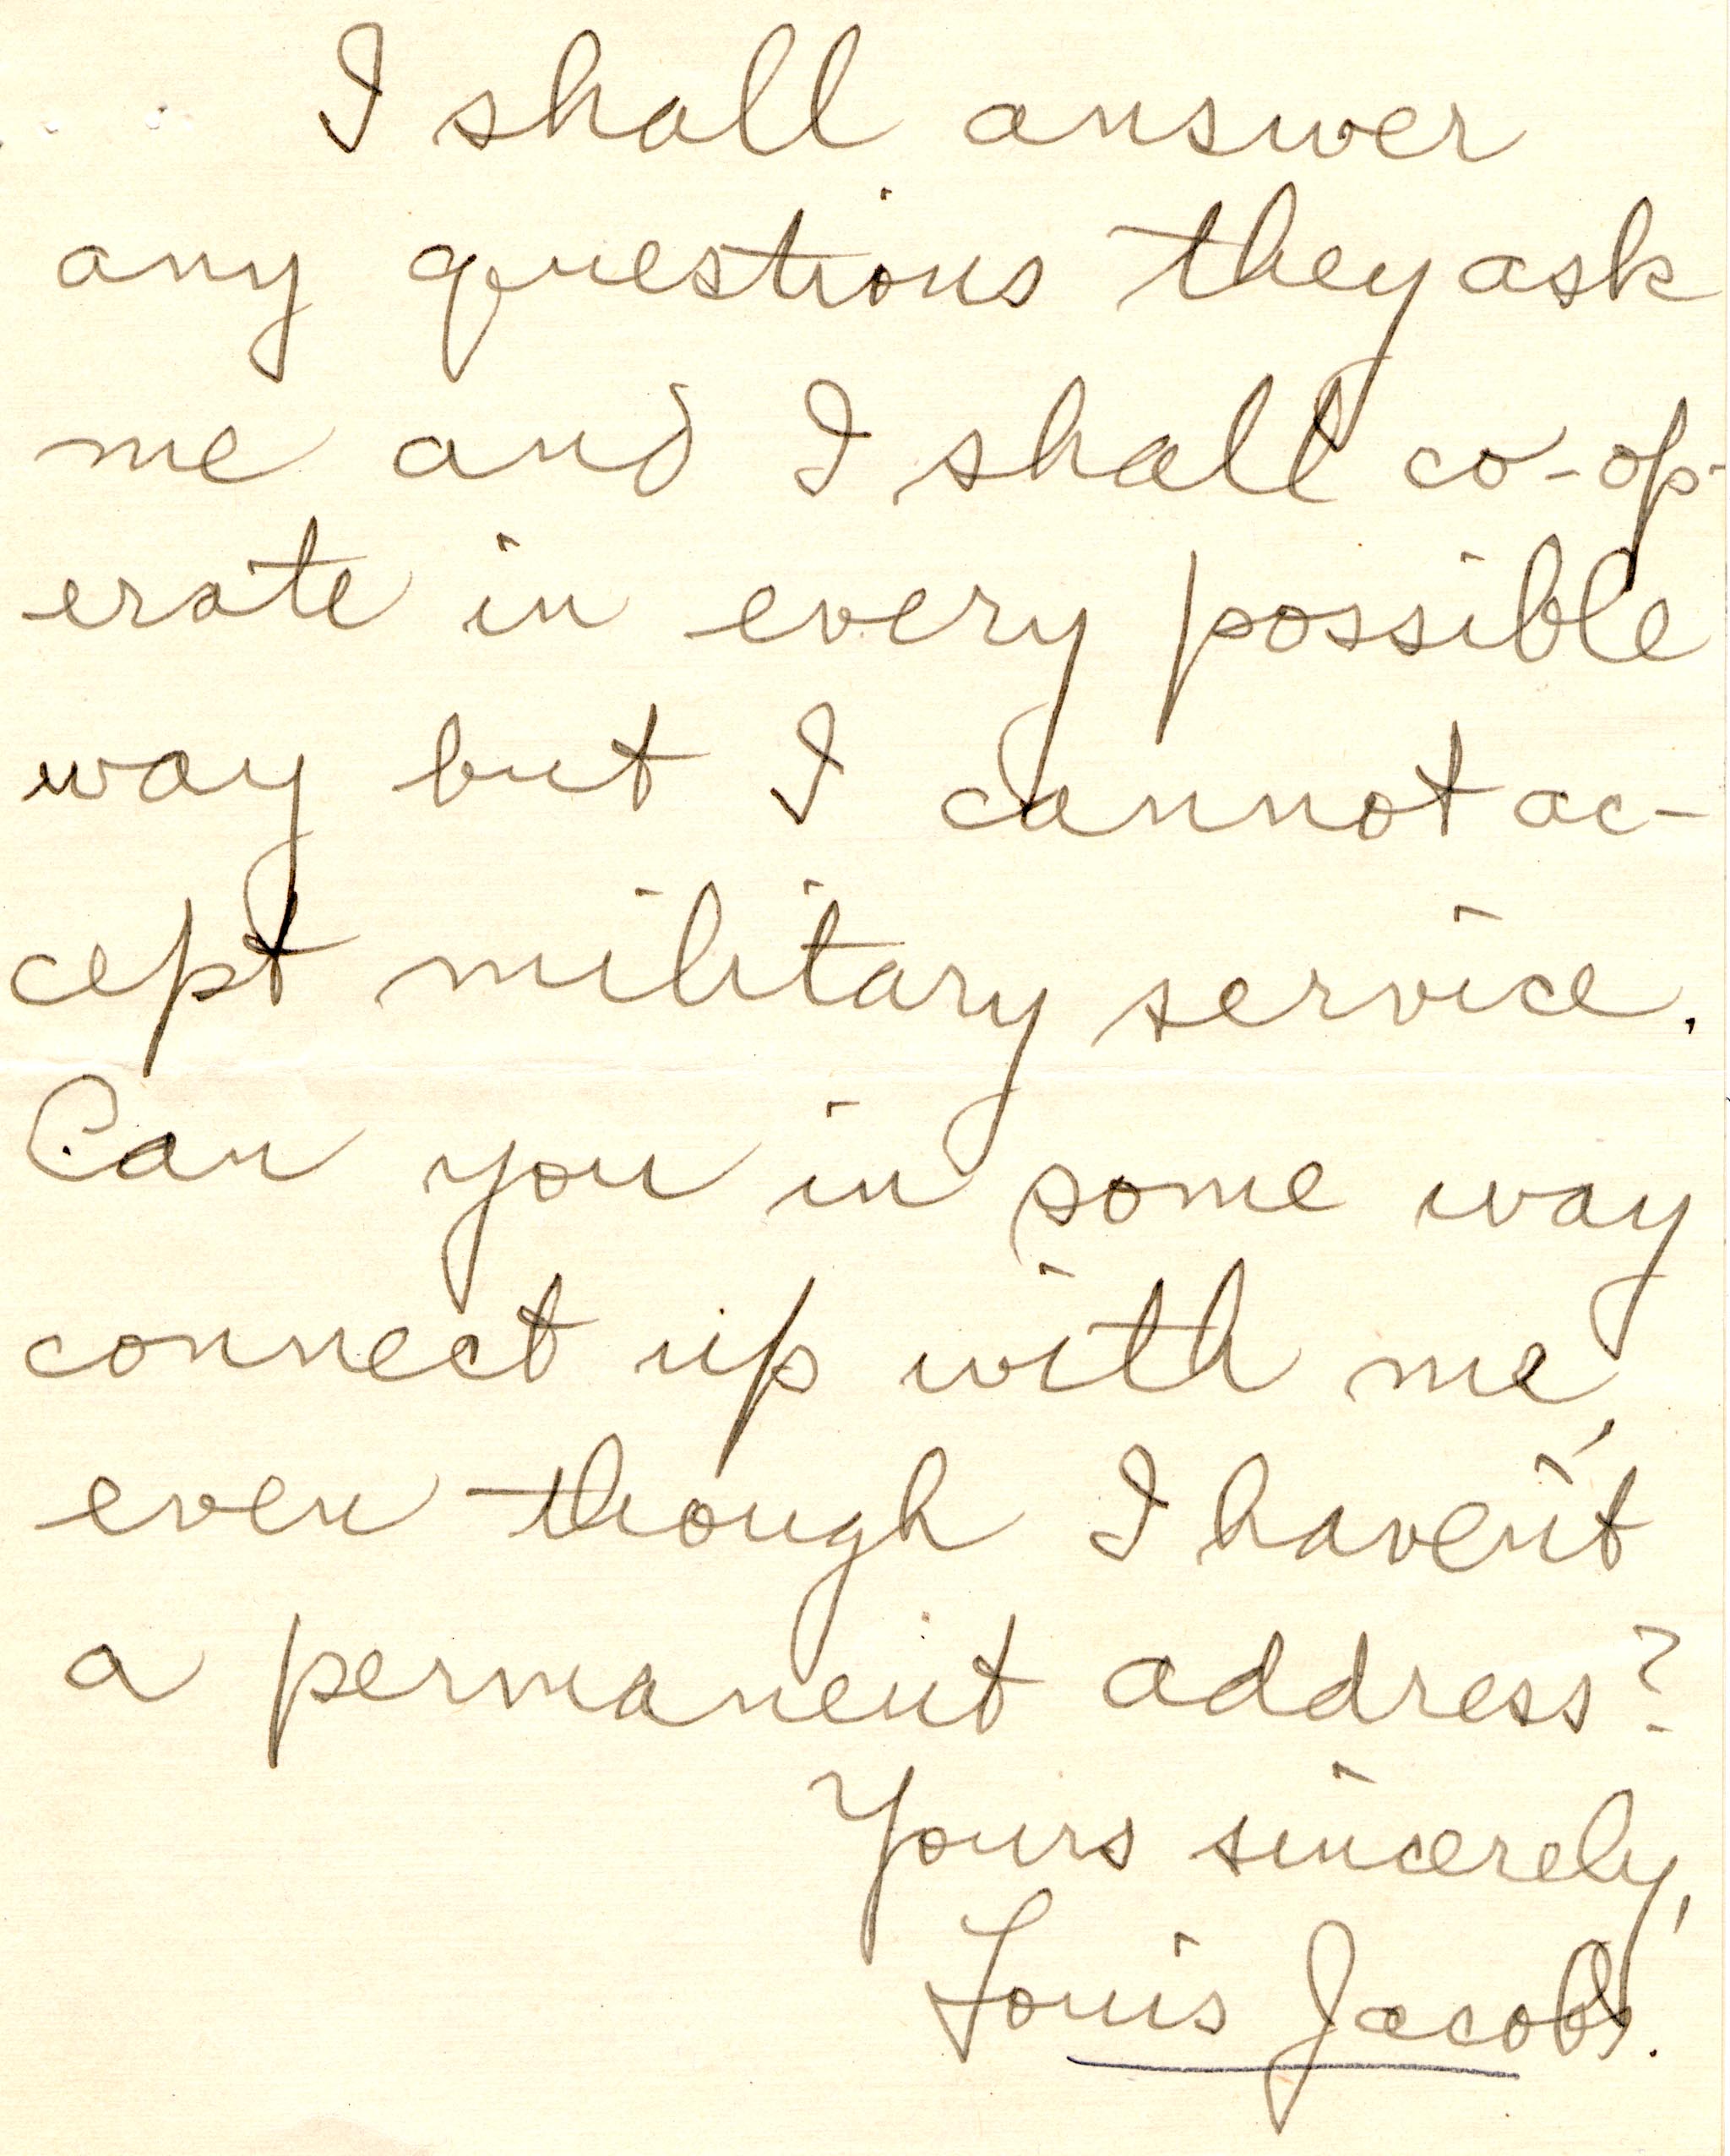 I shall answer
any questions they ask
me and I shall co-op-
erate in every possible
way but I cannot ac-
cept military service.
Can you in some way
connect up with me,
even though I haven't
a permanent address?
Yours sincerely,
Louis Jacobs.